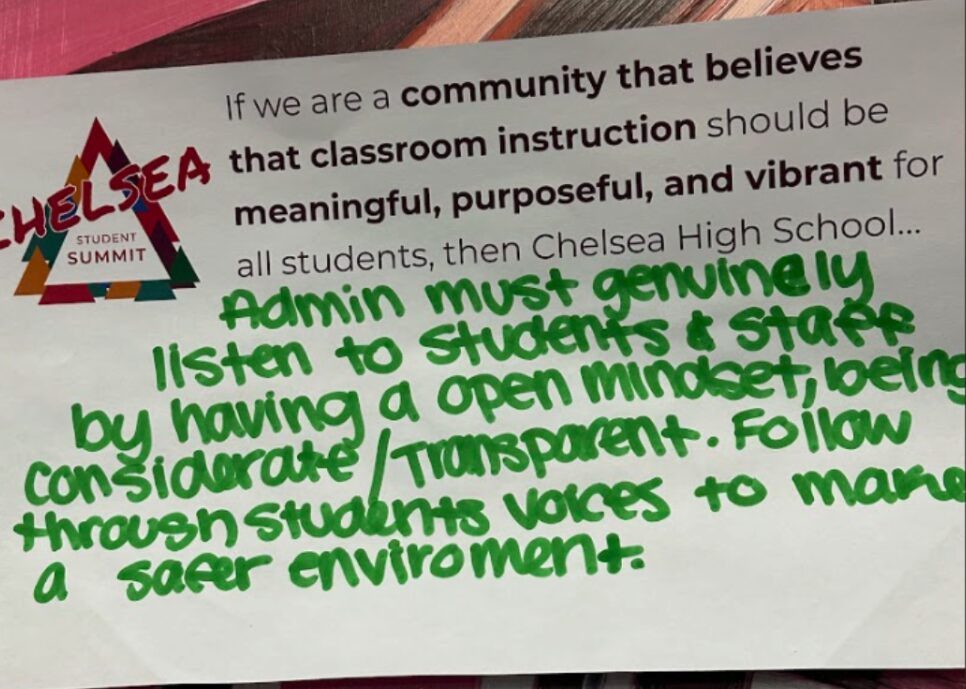 If we are a community that believes
that classroom instruction should be
meaningful, purposeful, and vibrant for
all students, then Chelsea High School...
CHELSEA
STUDENT
SUMMIT
Admin must genuinely
listen to students & staff
by having a open mindset, being
considerate/Transparent. Follow
through students voices to make
a safer enviroment.